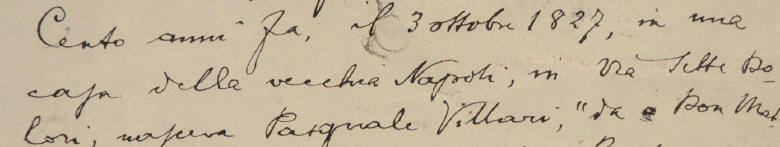 Cento anni fa, il 3 ottobre 1827, in una
casa della vecchia Napoli, in Via Sette Do-
lori, nasceva Pasquale Villari, "da Don Mat-